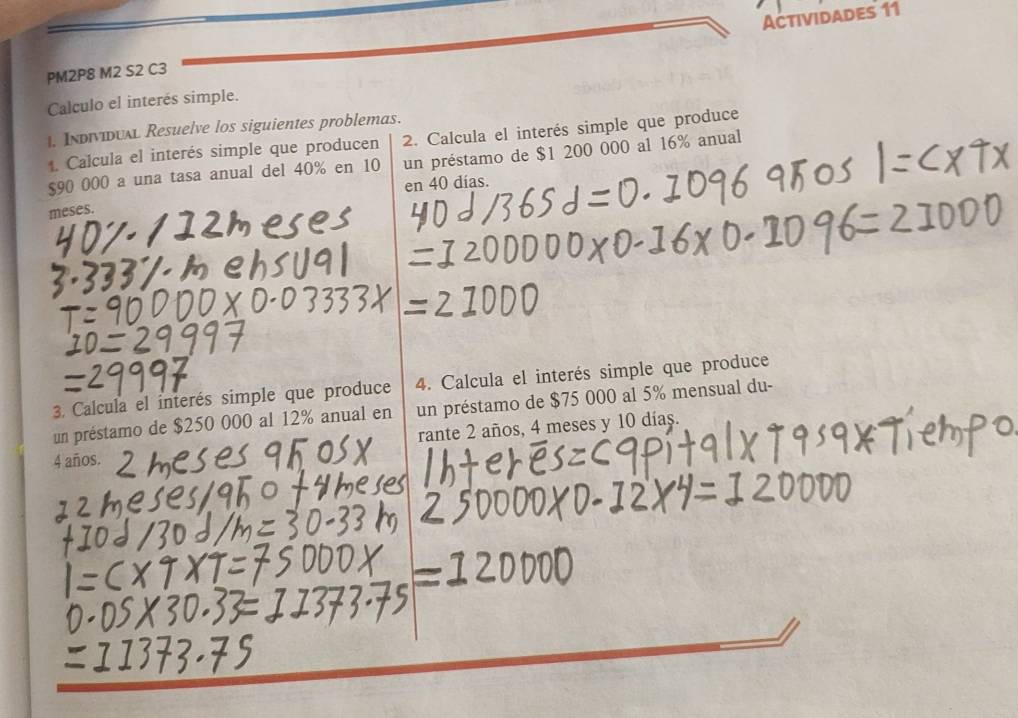 ACTIVIDADES 11
PM2P8 M2 S2 C3
Calculo el interés simple.
I. INDIVIDUAL Resuelve los siguientes problemas.
1. Calcula el interés simple que producen
$90 000 a una tasa anual del 40% en 10
meses.
40%/12meses
3.333% mensual
T=90000X0.03333X
10=29997
=29997
2. Calcula el interés simple que produce
un préstamo de $1 200 000 al 16% anual
en 40 días.
40d/365d=0.1096 años I=CxTx
=1200000x0.16x0.1096=21000
=21000
3. Calcula el interés simple que produce
un préstamo de $250 000 al 12% anual en
4 años.
2 meses años x
12meses/año+4meses
+10d/30d/m=30.33m
I=CxTxT=75000x
0.05x30.33=11373.75
=11373.75
4. Calcula el interés simple que produce
un préstamo de $75 000 al 5% mensual du-
rante 2 años, 4 meses y 10 días.
Interés=capitalxTasaxTiempo
250000x0.12x4=120000
=120000